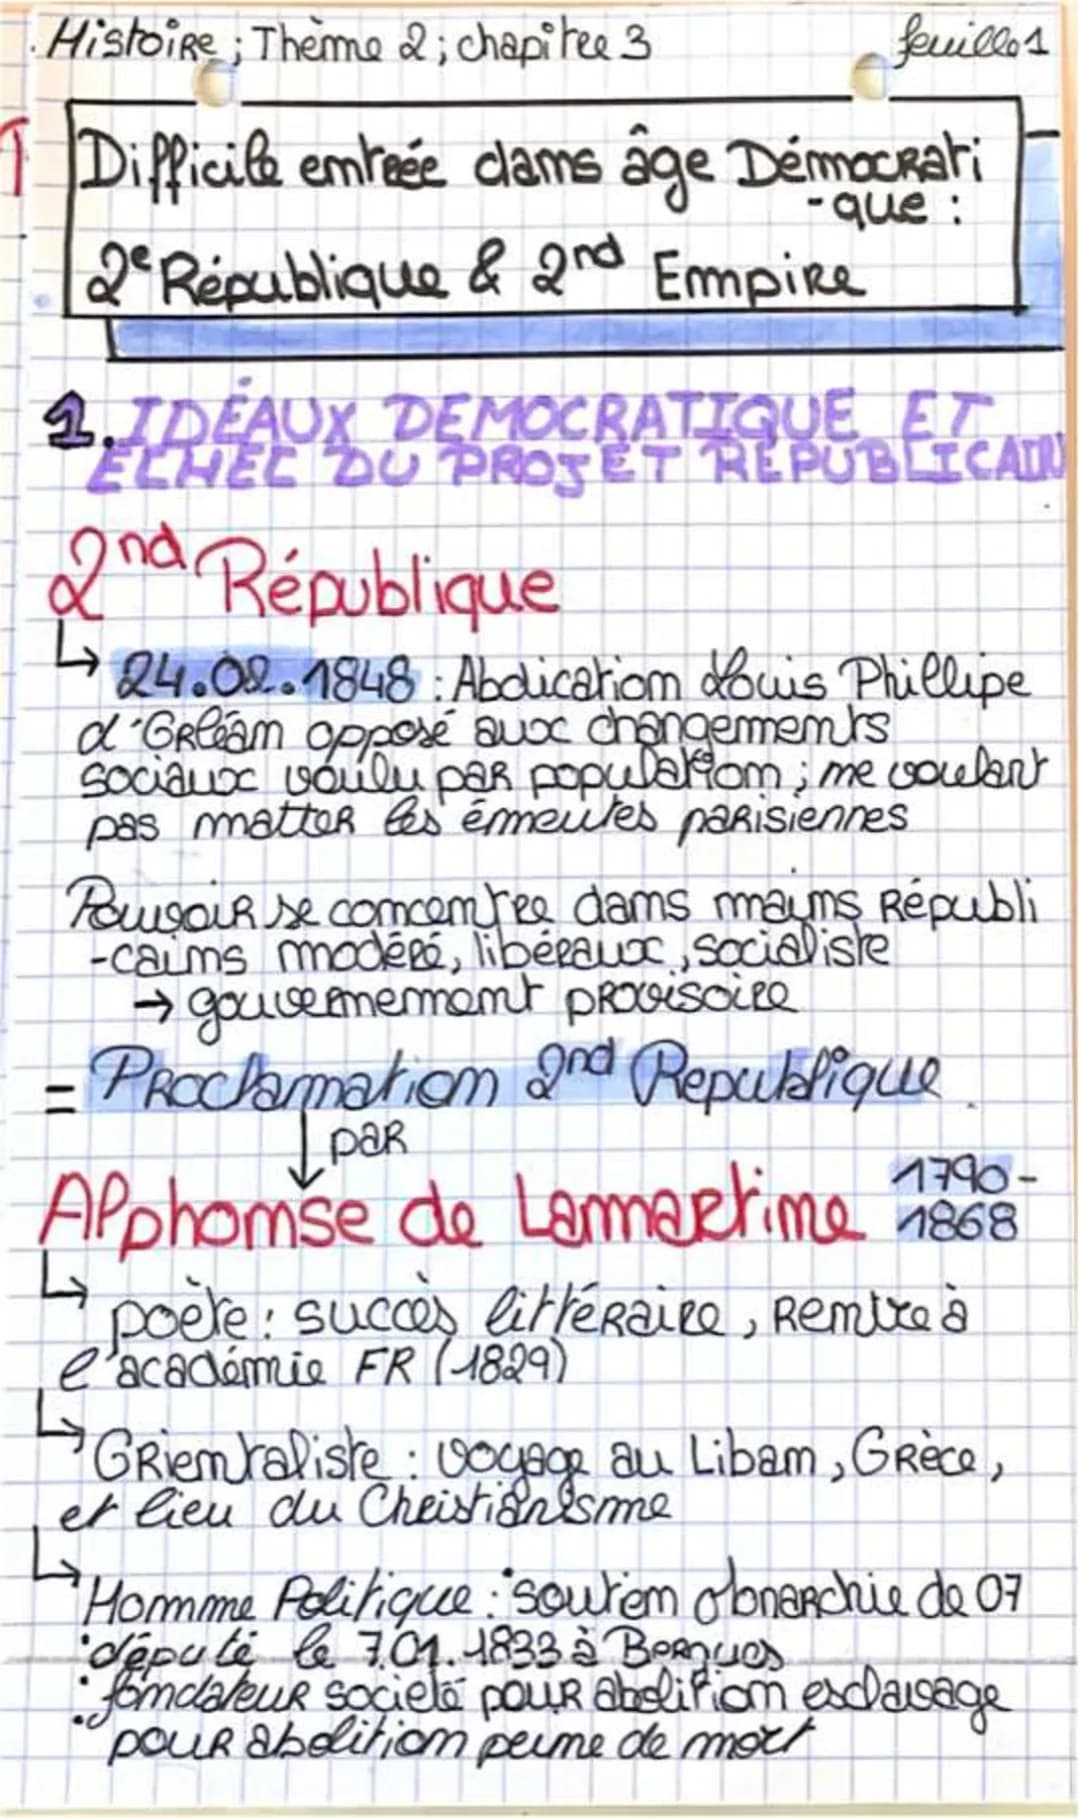 Histoire ; Thème 2 ; chapitre 3
feuille 1
Difficile entrée dans âge Démocrati
-que :
2e République & 2nd Empire
1. IDÉAUX DEMOCRATIQUE ET
ECHEC DU PROJET REPUBLICAIN
2nd République
↳ 24.02.1848 : Abdication Louis Phillipe
d'Orléan opposé aux changements
sociaux voulu par population ; ne voulant
pas matter les émeutes parisiennes
Pouvoir se concentre dans mains Républi
-cains modéré, libéraux, socialiste
→ gouvernement provisoire
= Proclamation 2nd Republique
↓ par
Alphonse de Lamartine
1790-
1868
↳ poète : succès littéraire, Rentre à
l'académie FR (1829)
↳ Orientaliste : voyage au Liban, Grèce,
et lieu du Christianisme
↳ Homme Politique : • soutien Monarchie de 07
• député le 7.01.1833 à Bergues
• fondateur societé pour abolition esclavage
• pour abolition peine de mort